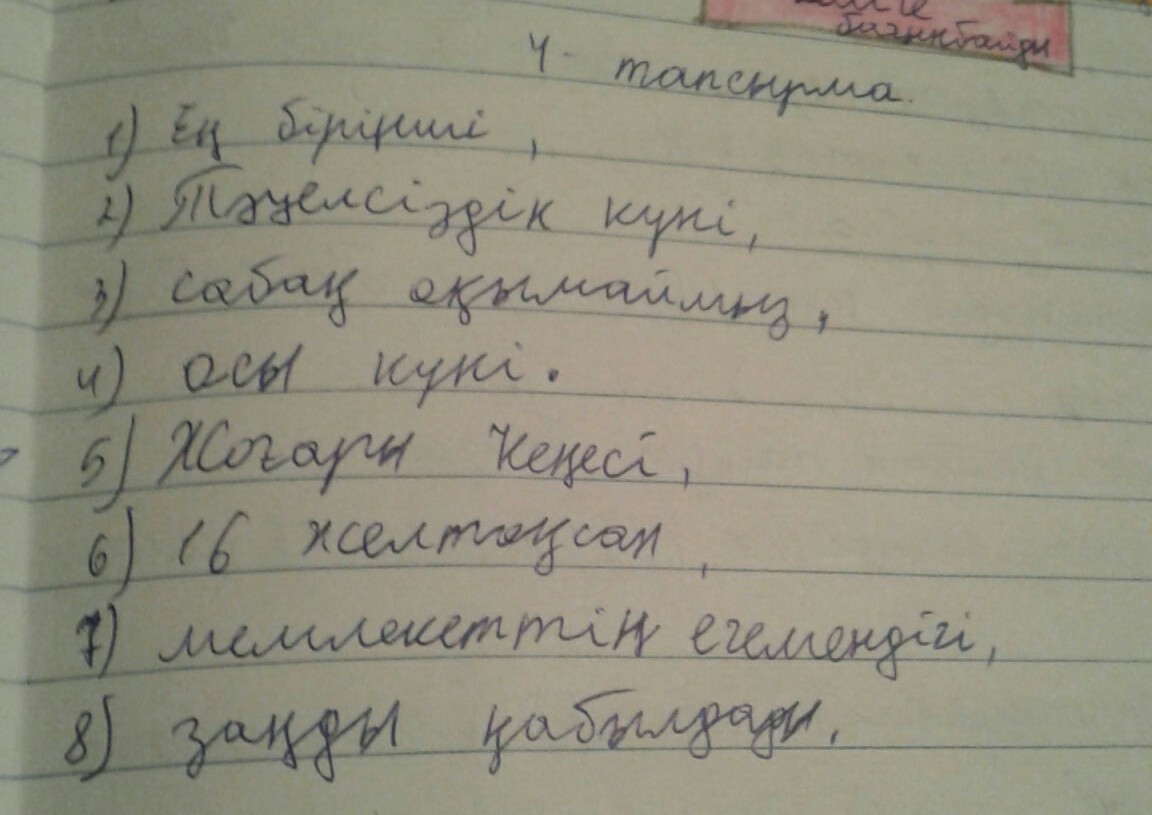 бағынбайды
4- тапсырма.
1) Ең бірінші,
2) Тәуелсіздік күні,
3) сабақ оқымаймыз,
4) осы күні.
5) Жоғары Кеңесі,
6) 16 желтоқсан,
7) мемлекеттің егемендігі,
8) заңды қабылдады.